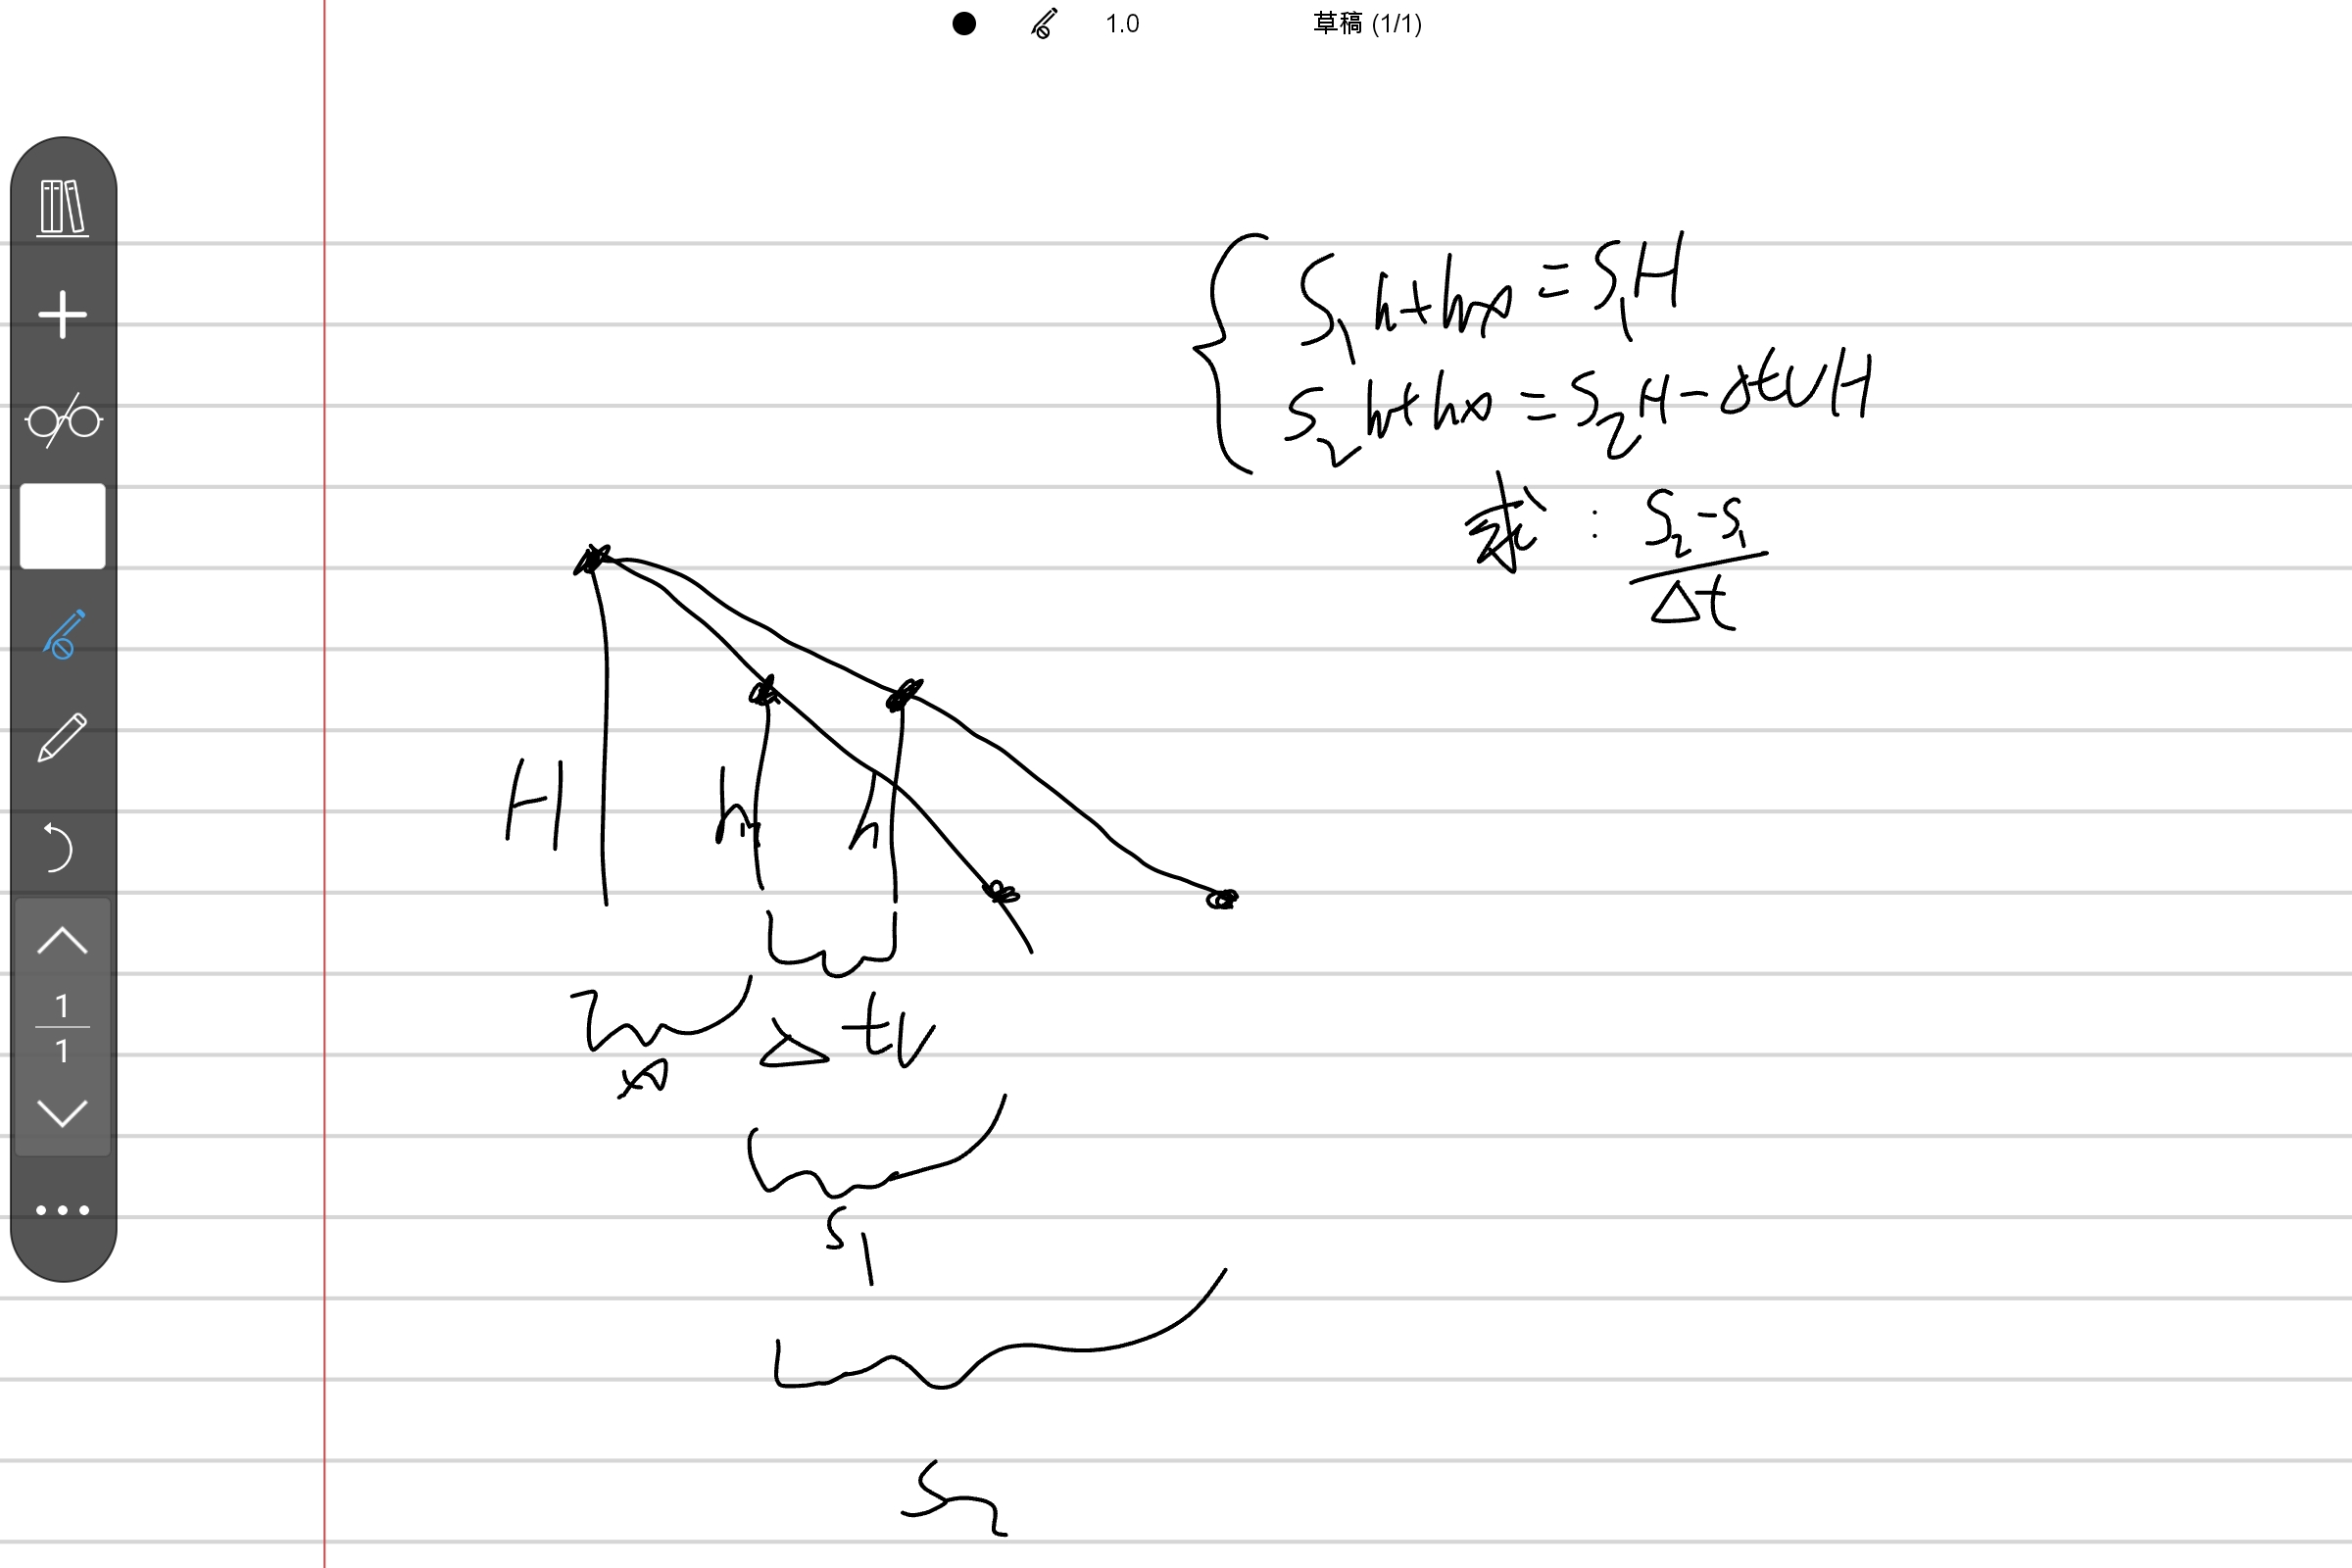 1.0 草稿 (1/1)
S₁h+hx=S₁H
S₂h+hx=S₂H-ΔtVH
求: (S₂-S₁)/Δt
H h h
1
1
x ΔtV
S₁
S₂